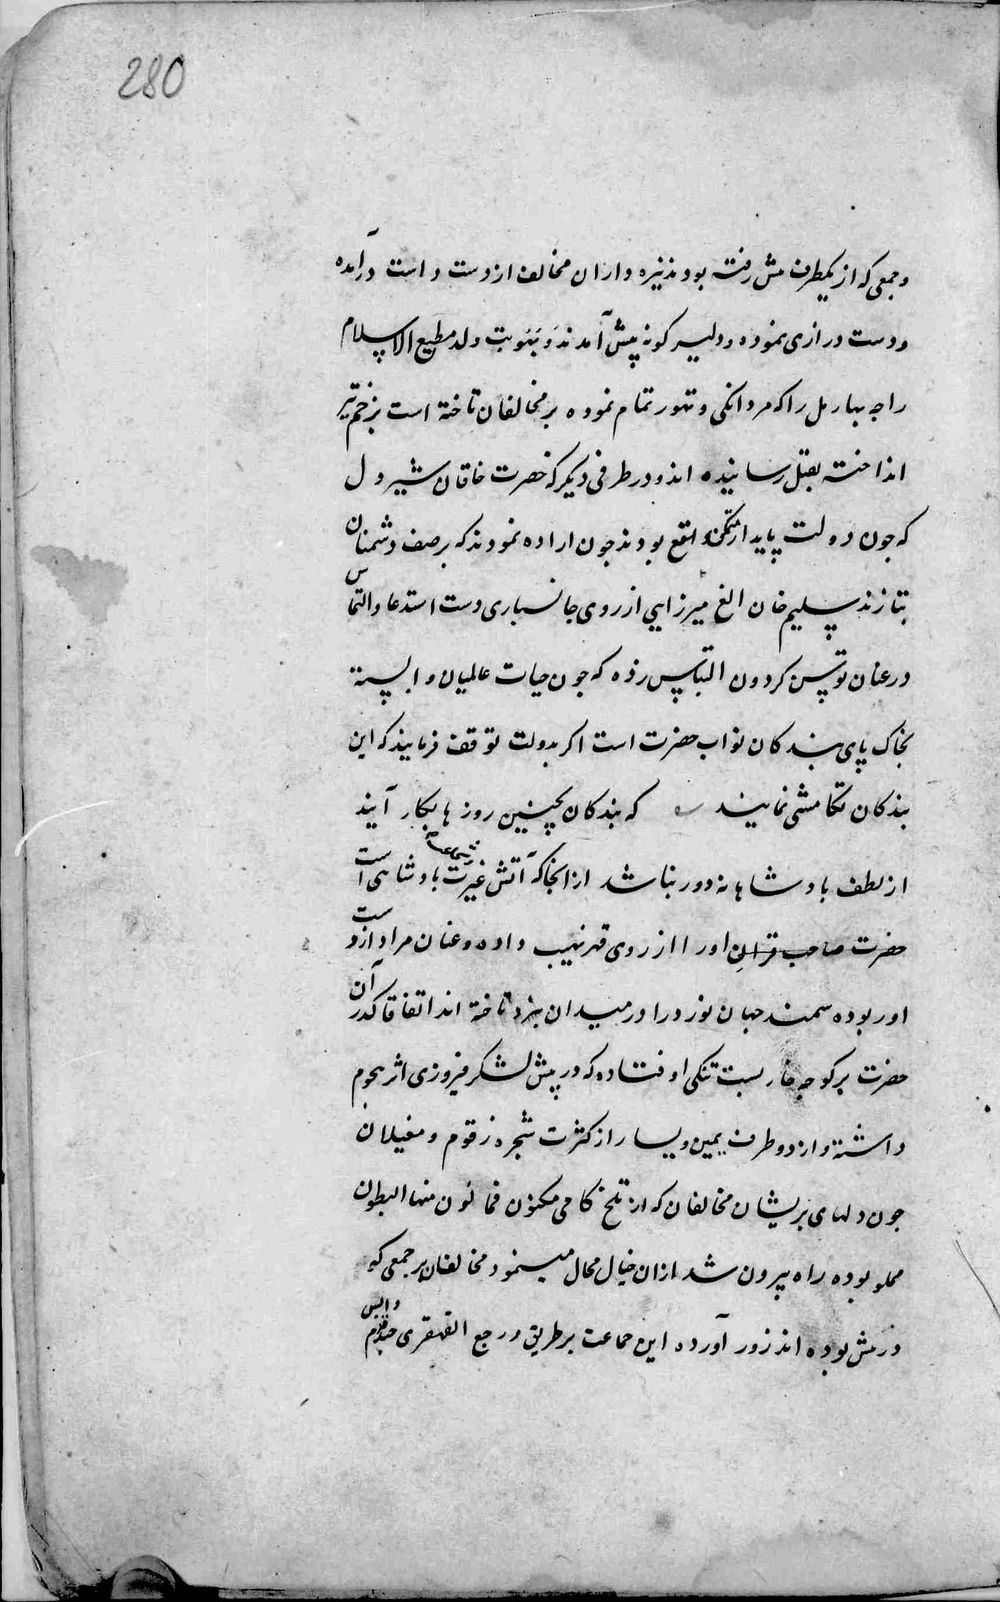 280
وجمعی که از یکطرف مش رفته بودند نیزه داران مخالف از دست راست درآمده
ودست درازی نموده و دلیر کونه پیش آمدند و بنوبت ولد مطیع الاسلام
راجه بهارمل را که مردانکی و تهور تمام نموده بر مخالفان تاخته است بزخم تیر
انداخته بقتل رسانیده اند و در طرفی دیکر که حضرت خاقان شیر دل
که چون دولت پایدار متمکن واقع بودند چون اراده نمودند که بر صف دشمنان
بتازند سلیم خان الغ میرزایی از روی جانسپاری دست استدعا والتماس
در عنان توسن کردون التباس زده که چون حیات عالمیان وابسته
بخاک پای بندکان نواب حضرت است اکر بدولت توقف فرمایند که این
بندکان تکامشی نمایند که بندکان بچنین روزها بکار آیند
از لطف بادشاهانه دور نباشد از انجا که آتش غیرت شجاعت بادشاهی است
حضرت صاحب قران او را از روی قهر نهیب داده وعنان مراد از دست
او ربوده سمند جهان نورد را در میدان نبرد تاخته اند اتفاقا کذر آن
حضرت بر کوچه خاربست تنکی اوفتاده که در پیش لشکر فیروزی اثر هجوم
داشته و از دو طرف یمین ویسار از کثرت شجره زقوم ومغیلان
چون دلهای پریشان مخالفان که از تلخ کامی مکنون فمالئون منها البطون
مملو بوده راه بیرون شد از ان خیال محال مینمود مخالفان بر جمعی که
در مش بوده اند زور آورده این جماعت بر طریق رجع القهقری واپس